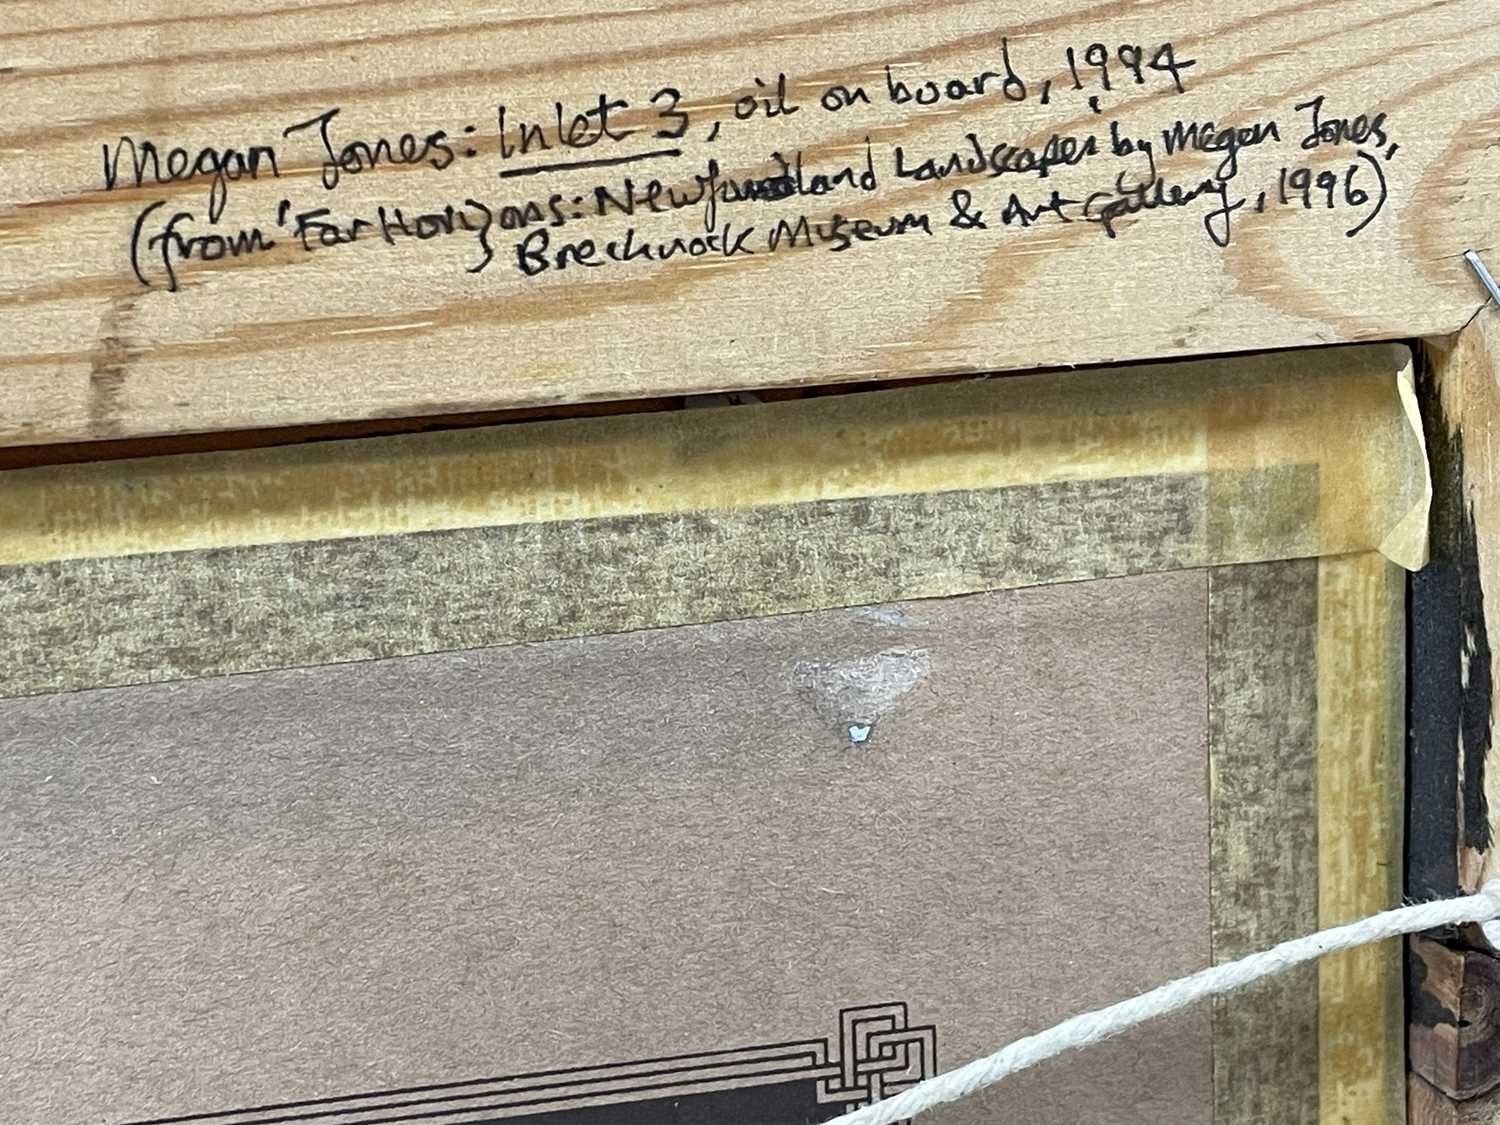 Megan Jones: Inlet 3, oil on board, 1994
(from 'Far Horizons: Newfoundland Landscapes by Megan Jones,
Brecknock Museum & Art Gallery, 1996)